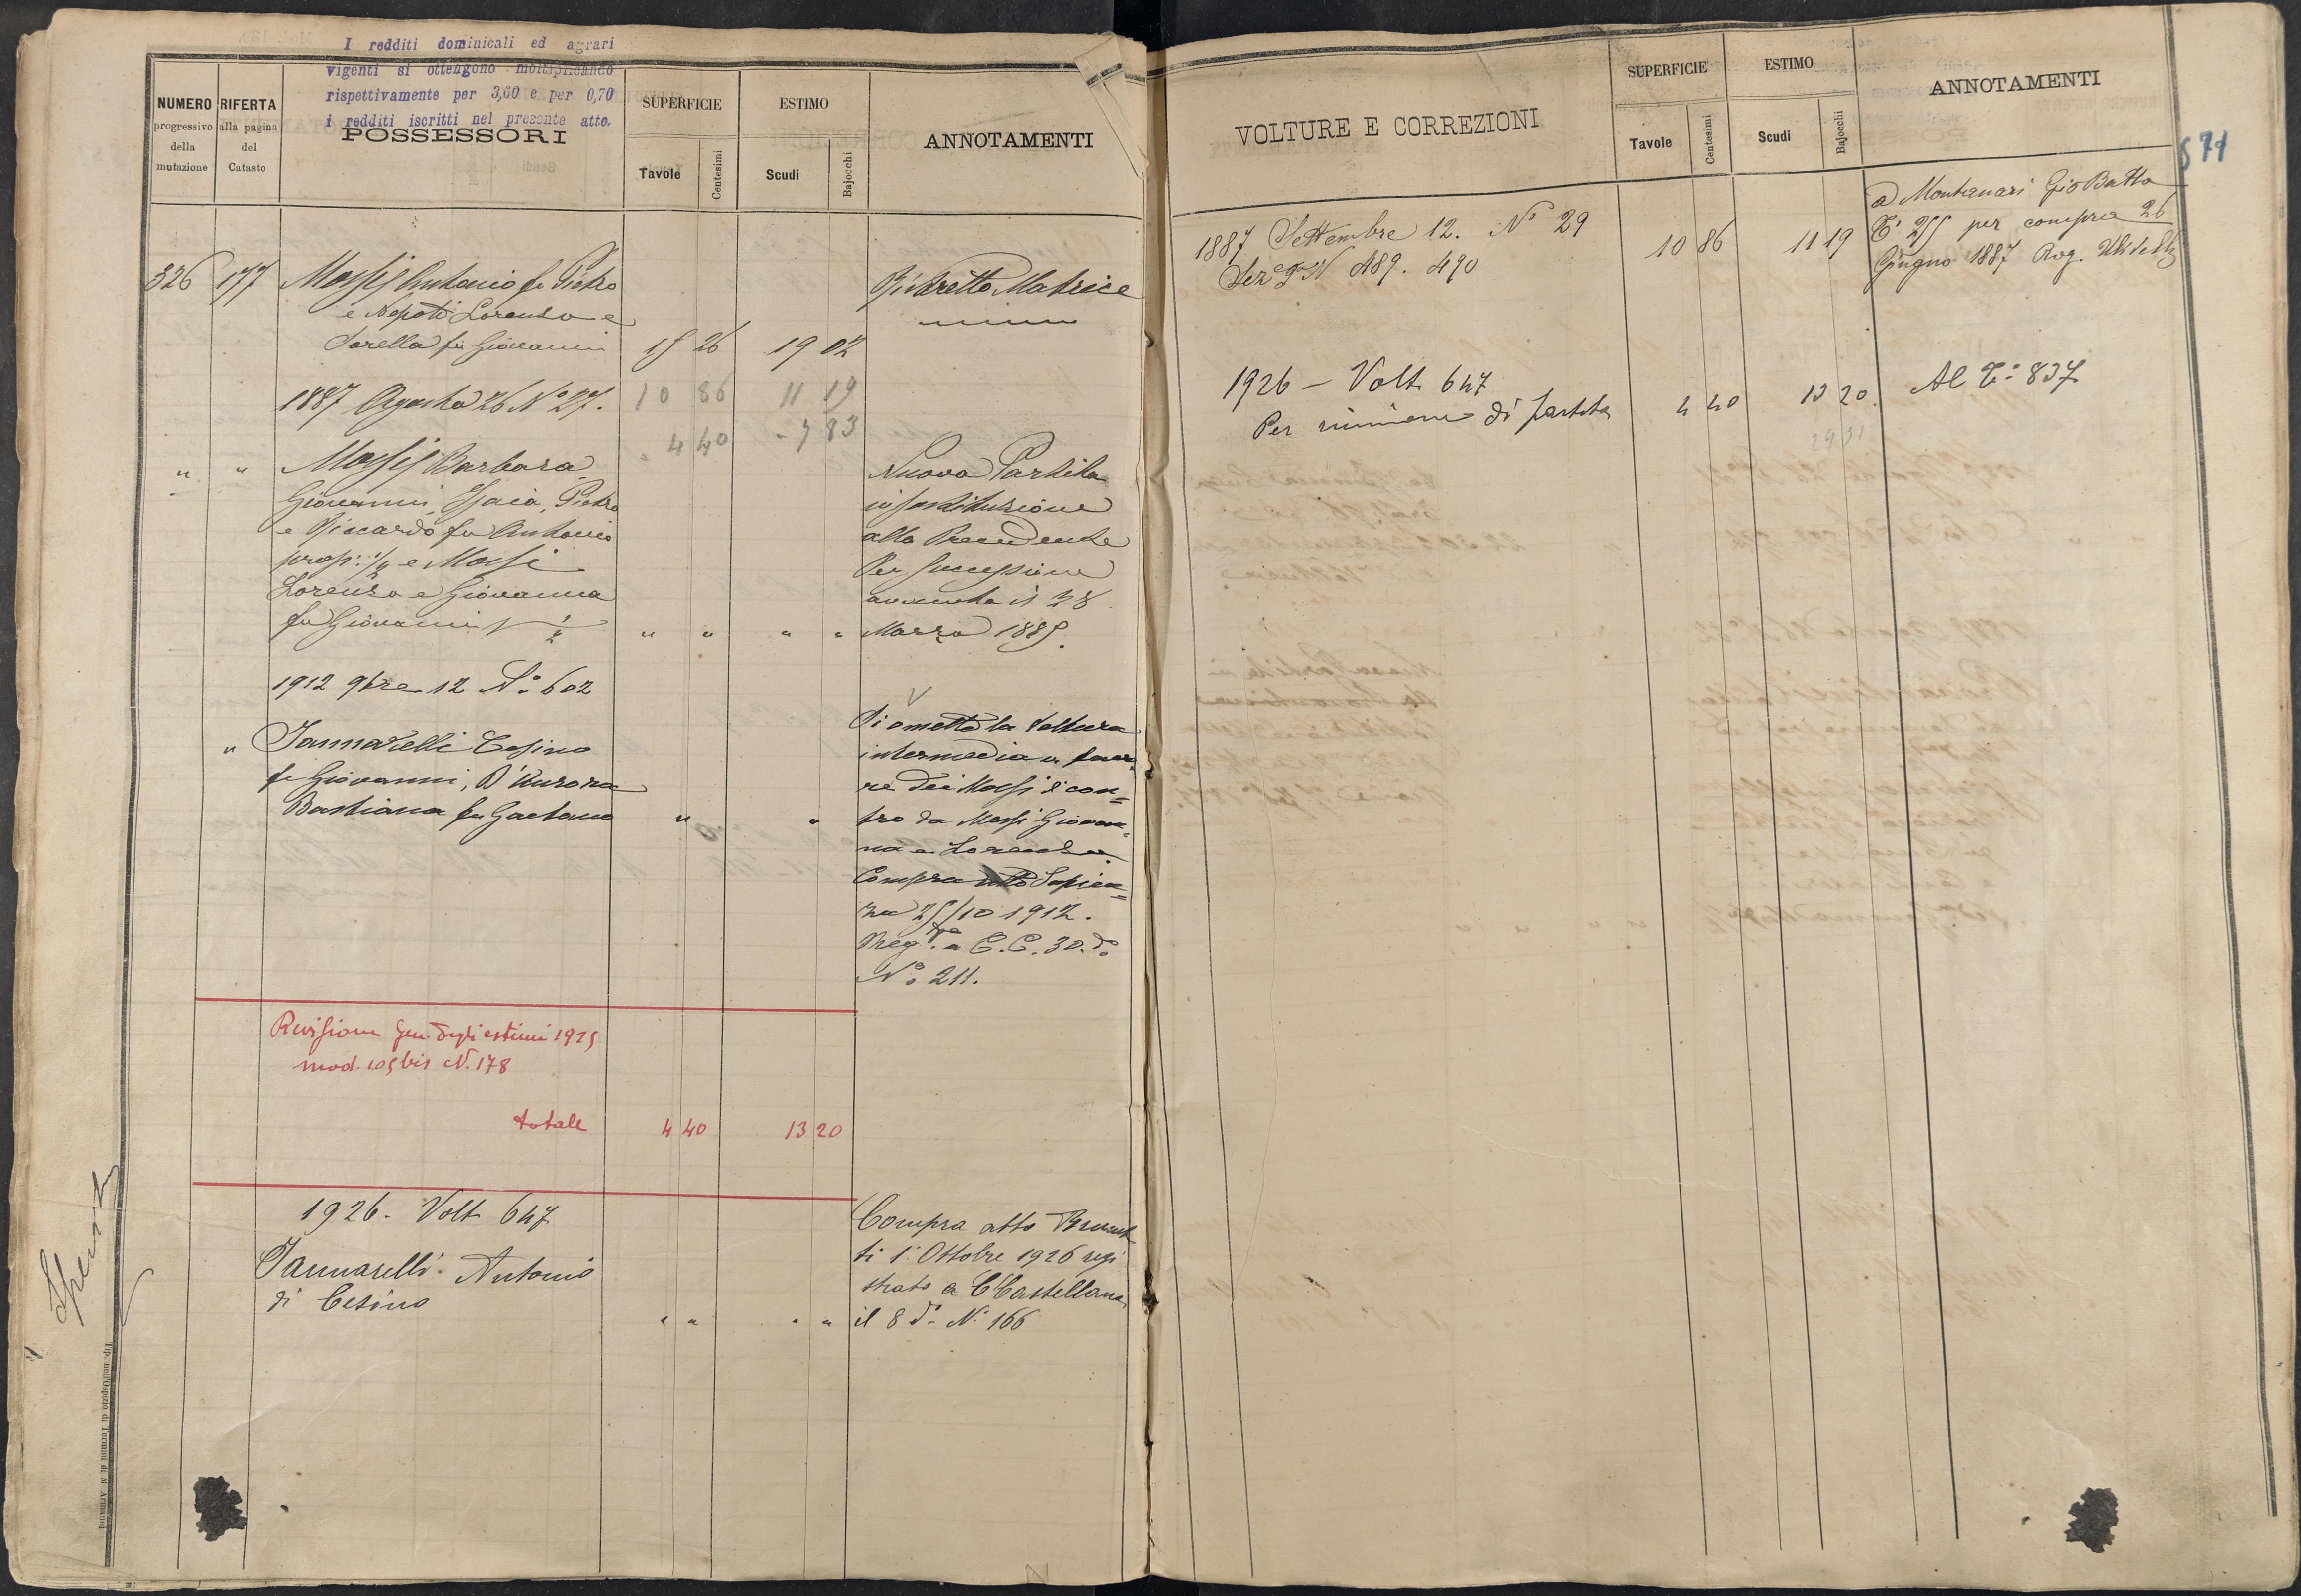 I redditi dominicali ed agrari
vigenti si ottengono moltiplicando
rispettivamente per 3,60 e per 0,70
i redditi iscritti nel presente atto.
NUMERO
progressivo
della
mutazione
RIFERTA
alla pagina
del
Catasto
POSSESSORI
SUPERFICIE
Tavole
Centesimi
ESTIMO
Scudi
Bajocchi
ANNOTAMENTI
326 177 Massi Antonio fu Pietro
e Nepoti Lorenzo e
Sorella fu Giovanni 15 26 19 02
Libretto Matrice
1887 Agosto 26 No 27. 10 86 11 19
4 40 7 83
" " Massi Barbara
Giovanni, Isaia, Pietro
e Riccardo fu Antonio
prop: 1/2 e Massi
Lorenzo e Giovanna
fu Giovanni 1/2 " " " "
Nuova Partita
in sostituzione
alla Precedente
Per successione
avvenuta il 28
Marzo 1885.
1912 9bre 12 No 602
" Iannarelli Cesino
fu Giovanni, D'Aurora
Bastiana fu Gaetano " "
Si omette la Voltura
intermedia a favo=
re dei Massi e con=
tro da Massi Giovan=
na e Lorenzo
Compra atto Sapien=
za 25/10 1912.
Reg. a C. C. 30. do
No 211.
Revisione gen. degli estimi 1925
mod. 105 bis N. 178
totale 4 40 13 20
1926 - Volt 647
Iannarelli Antonio
di Cesino " " " "
Compra atto
ti 1o Ottobre 1926 regi
strato a CCastellana
il 8 do No 166
VOLTURE E CORREZIONI
SUPERFICIE
Tavole
Centesimi
ESTIMO
Scudi
Bajocchi
ANNOTAMENTI
571
1887 Settembre 12. No 29
Sez N 489. 490 10 86 11 19
a Montanari GioBatta
To 255 per compra 26
Giugno 1887 Rog.
1926 - Volt 647
Per riunione di partita 4 40 13 20 Al To 837
24 31